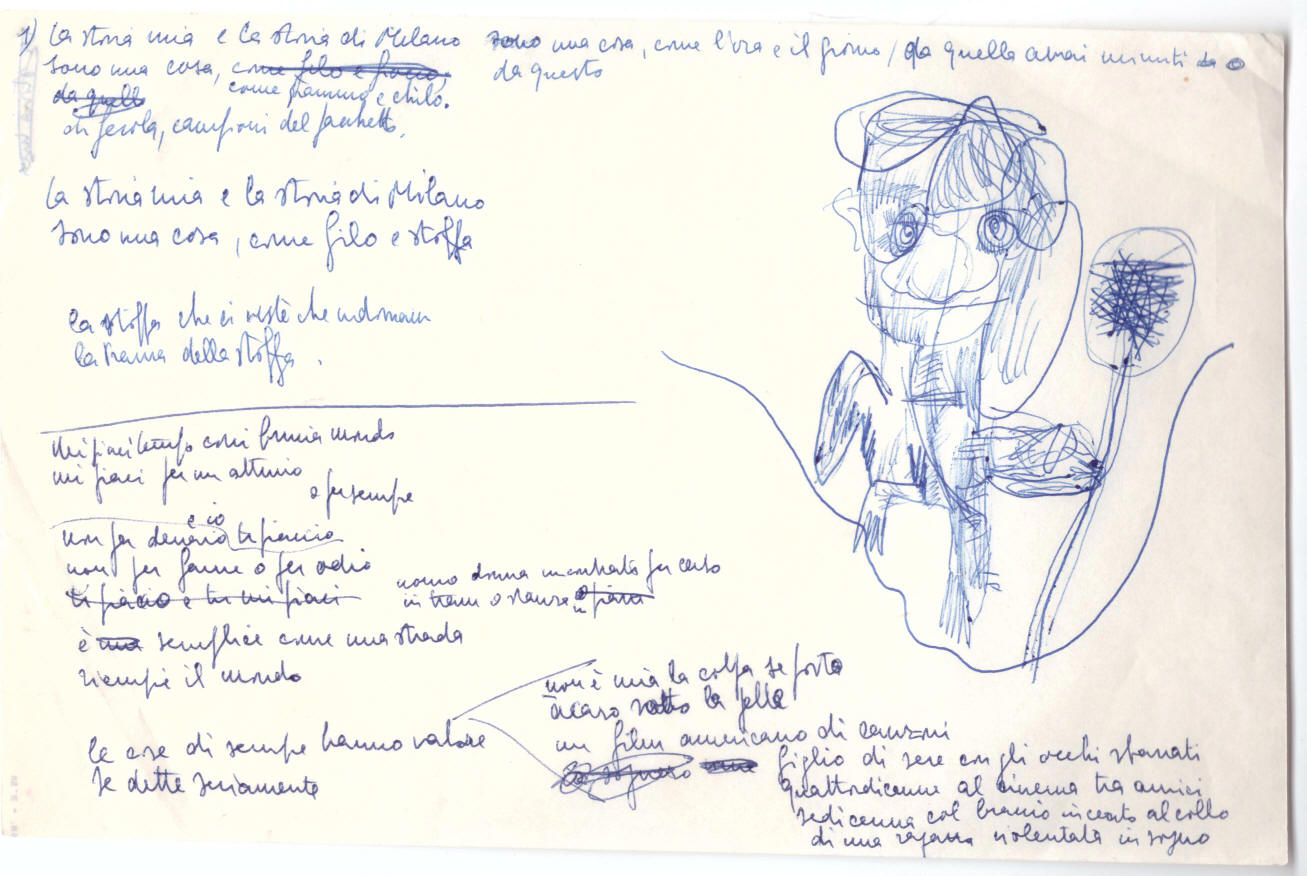 1) la storia mia e la storia di Milano
sono una cosa, come filo e panno,
da quello come grammo e chilo.
di fesola, campioni del pacchetto,
sono una cosa, come l'ora e il giorno / da quella avrai minuti da
da questo
la storia mia e la storia di Milano
sono una cosa, come filo e stoffa
la stoffa che ci veste che indomani
la trama della stoffa.
mi piaci tempo così brucia mondo
mi piaci per un attimo
o per sempre
e io
non per denaro ti piaccio
non per fame o per odio
ti piacio e tu mi piaci
uomo donna incontrato per caso
in tram o stanza o in
è una semplice come una strada
riempie il mondo
le cose di sempre hanno valore
se dette seriamente
non è mia la colpa se porto
a caso sotto la pelle
un film americano di canzoni
figlio di sere con gli occhi sbarrati
quattordicenne al cinema tra amici
sedicenne col braccio incerto al collo
di una ragazza violentata in sogno